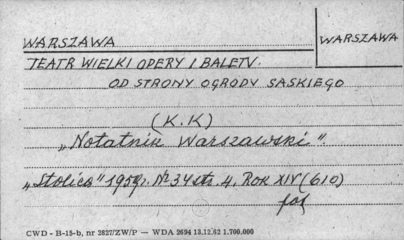 WARSZAWA
WARSZAWA
TEATR WIELKI OPERY I BALETU.
OD STRONY OGRODU SASKIEGO
(K.K)
„Notatnik Warszawski".
„Stolica" 1959r. Nr 34 str. 4. ROK XIV (610)
fot
CWD - B-15-b, nr 2827/ZW/P — WDA 2694 13.12.62 1.700.000